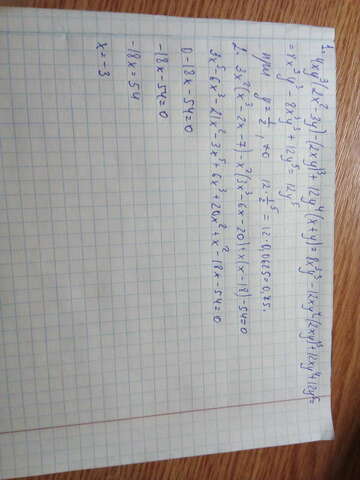 1. 4xy³(2x²-3y)-(2xy)³+12y⁴(x+y)=8x³y³-12xy⁴-(2xy)³+12xy⁴+12y⁵=
=8x³y³-8x³y³+12y⁵=12y⁵
при y=1/2, то 12·1/2⁵=12·0,0625=0,75.
2. 3x²(x³-2x-7)-x²(3x³-6x-20)+x(x-18)-54=0
3x⁵-6x³-21x²-3x⁵+6x³+20x²+x²-18x-54=0
0-18x-54=0
-18x-54=0
-18=54
x=-3